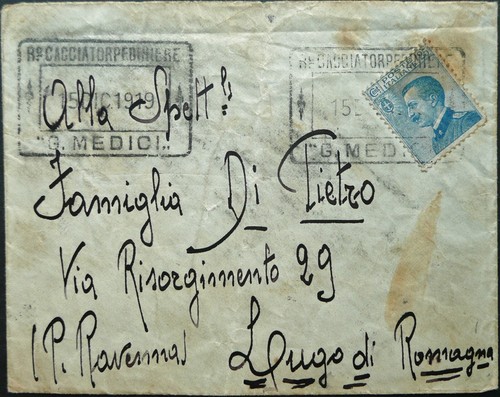 Rº CACCIATORPEDINIERE
15 DIC 1919
"G. MEDICI"
Rº CACCIATORPEDINIERE
15
"G. MEDICI
Alla Spett.
Famiglia Di Pietro
Via Risorgimento 29
(P. Ravenna) Lugo di Romagna